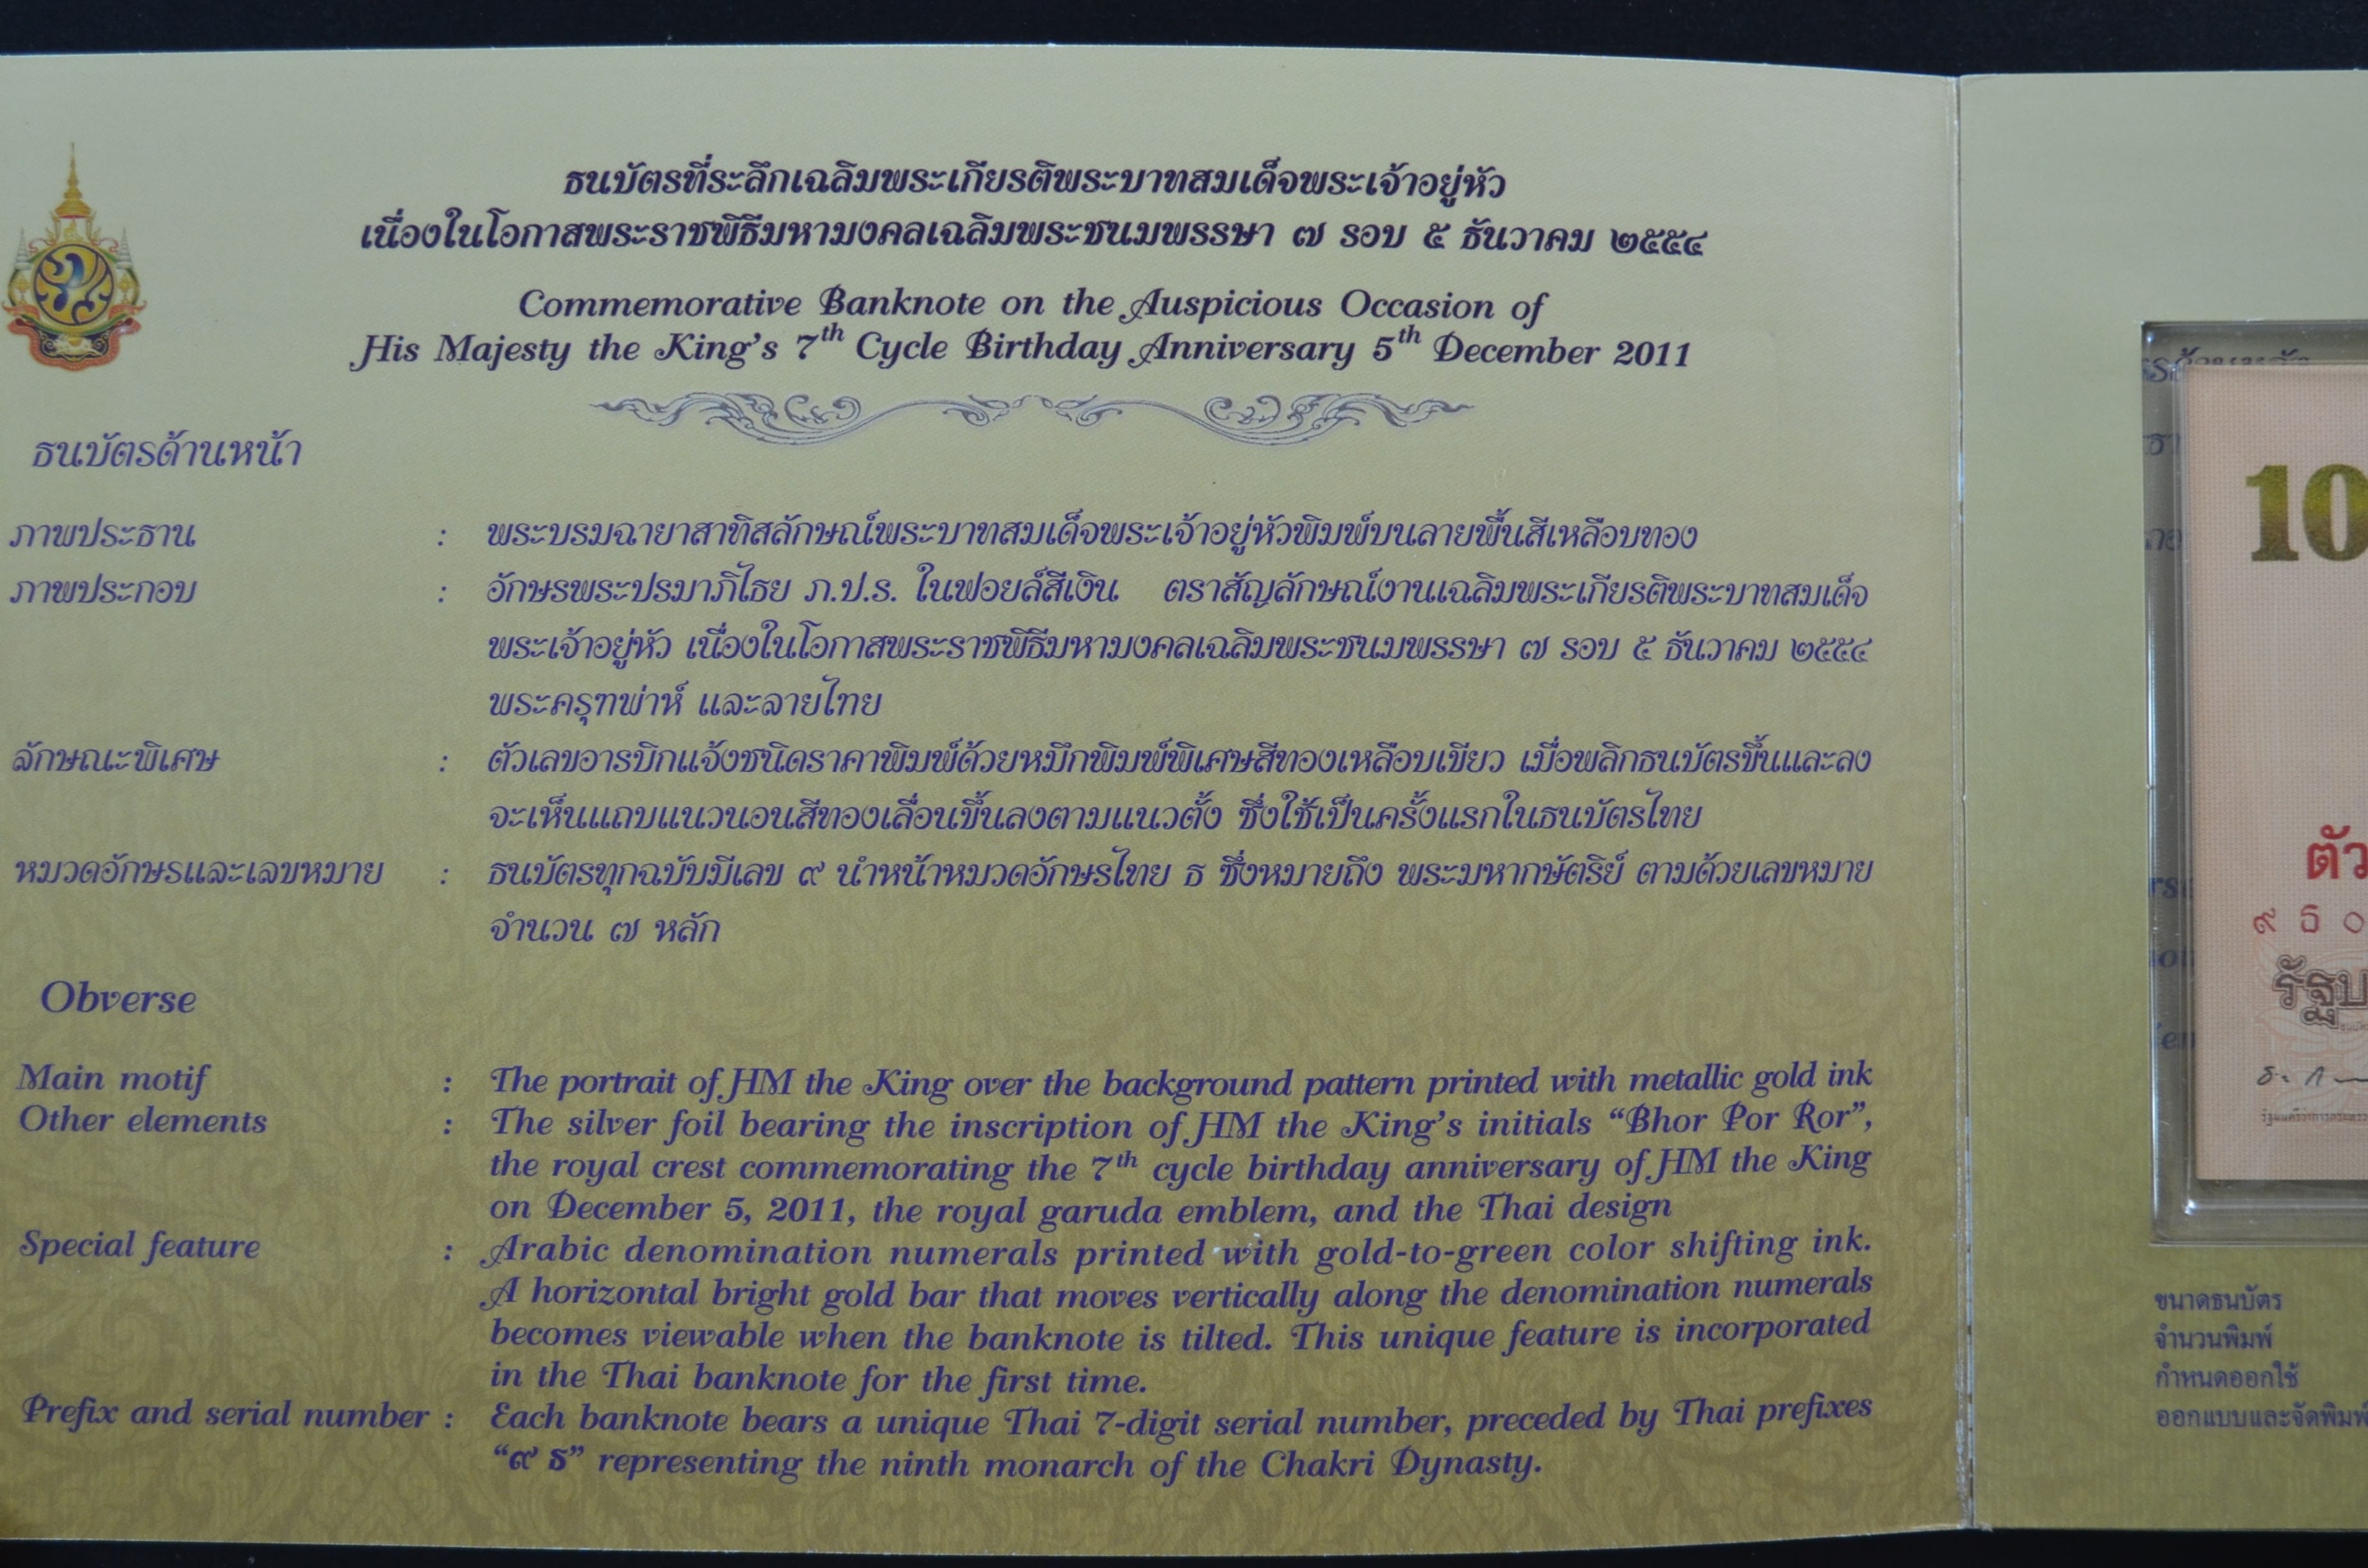 ธนบัตรที่ระลึกเฉลิมพระเกียรติพระบาทสมเด็จพระเจ้าอยู่หัว
เนื่องในโอกาสพระราชพิธีมหามงคลเฉลิมพระชนมพรรษา ๗ รอบ ๕ ธันวาคม ๒๕๕๔
Commemorative Banknote on the Auspicious Occasion of
His Majesty the King's 7th Cycle Birthday Anniversary 5th December 2011
ธนบัตรด้านหน้า
ภาพประธาน : พระบรมฉายาสาทิสลักษณ์พระบาทสมเด็จพระเจ้าอยู่หัวพิมพ์บนลายพื้นสีเหลือบทอง
ภาพประกอบ : อักษรพระปรมาภิไธย ภ.ป.ร. ในฟอยล์สีเงิน ตราสัญลักษณ์งานเฉลิมพระเกียรติพระบาทสมเด็จ
พระเจ้าอยู่หัว เนื่องในโอกาสพระราชพิธีมหามงคลเฉลิมพระชนมพรรษา ๗ รอบ ๕ ธันวาคม ๒๕๕๔
พระครุฑพ่าห์ และลายไทย
ลักษณะพิเศษ : ตัวเลขอารบิกแจ้งชนิดราคาพิมพ์ด้วยหมึกพิมพ์พิเศษสีทองเหลือบเขียว เมื่อพลิกธนบัตรขึ้นและลง
จะเห็นแถบแนวนอนสีทองเลื่อนขึ้นลงตามแนวตั้ง ซึ่งใช้เป็นครั้งแรกในธนบัตรไทย
หมวดอักษรและเลขหมาย : ธนบัตรทุกฉบับมีเลข ๙ นำหน้าหมวดอักษรไทย ธ ซึ่งหมายถึง พระมหากษัตริย์ ตามด้วยเลขหมาย
จำนวน ๗ หลัก
Obverse
Main motif : The portrait of HM the King over the background pattern printed with metallic gold ink
Other elements : The silver foil bearing the inscription of HM the King's initials “Bhor Por Ror”,
the royal crest commemorating the 7th cycle birthday anniversary of HM the King
on December 5, 2011, the royal garuda emblem, and the Thai design
Special feature : Arabic denomination numerals printed with gold-to-green color shifting ink.
A horizontal bright gold bar that moves vertically along the denomination numerals
becomes viewable when the banknote is tilted. This unique feature is incorporated
in the Thai banknote for the first time.
Prefix and serial number : Each banknote bears a unique Thai 7-digit serial number, preceded by Thai prefixes
“๙ ธ” representing the ninth monarch of the Chakri Dynasty.
10
ตัว
๙ ธ ๐
รัฐบ
ขนาดธนบัตร
จำนวนพิมพ์
กำหนดออกใช้
ออกแบบและจัดพิมพ์